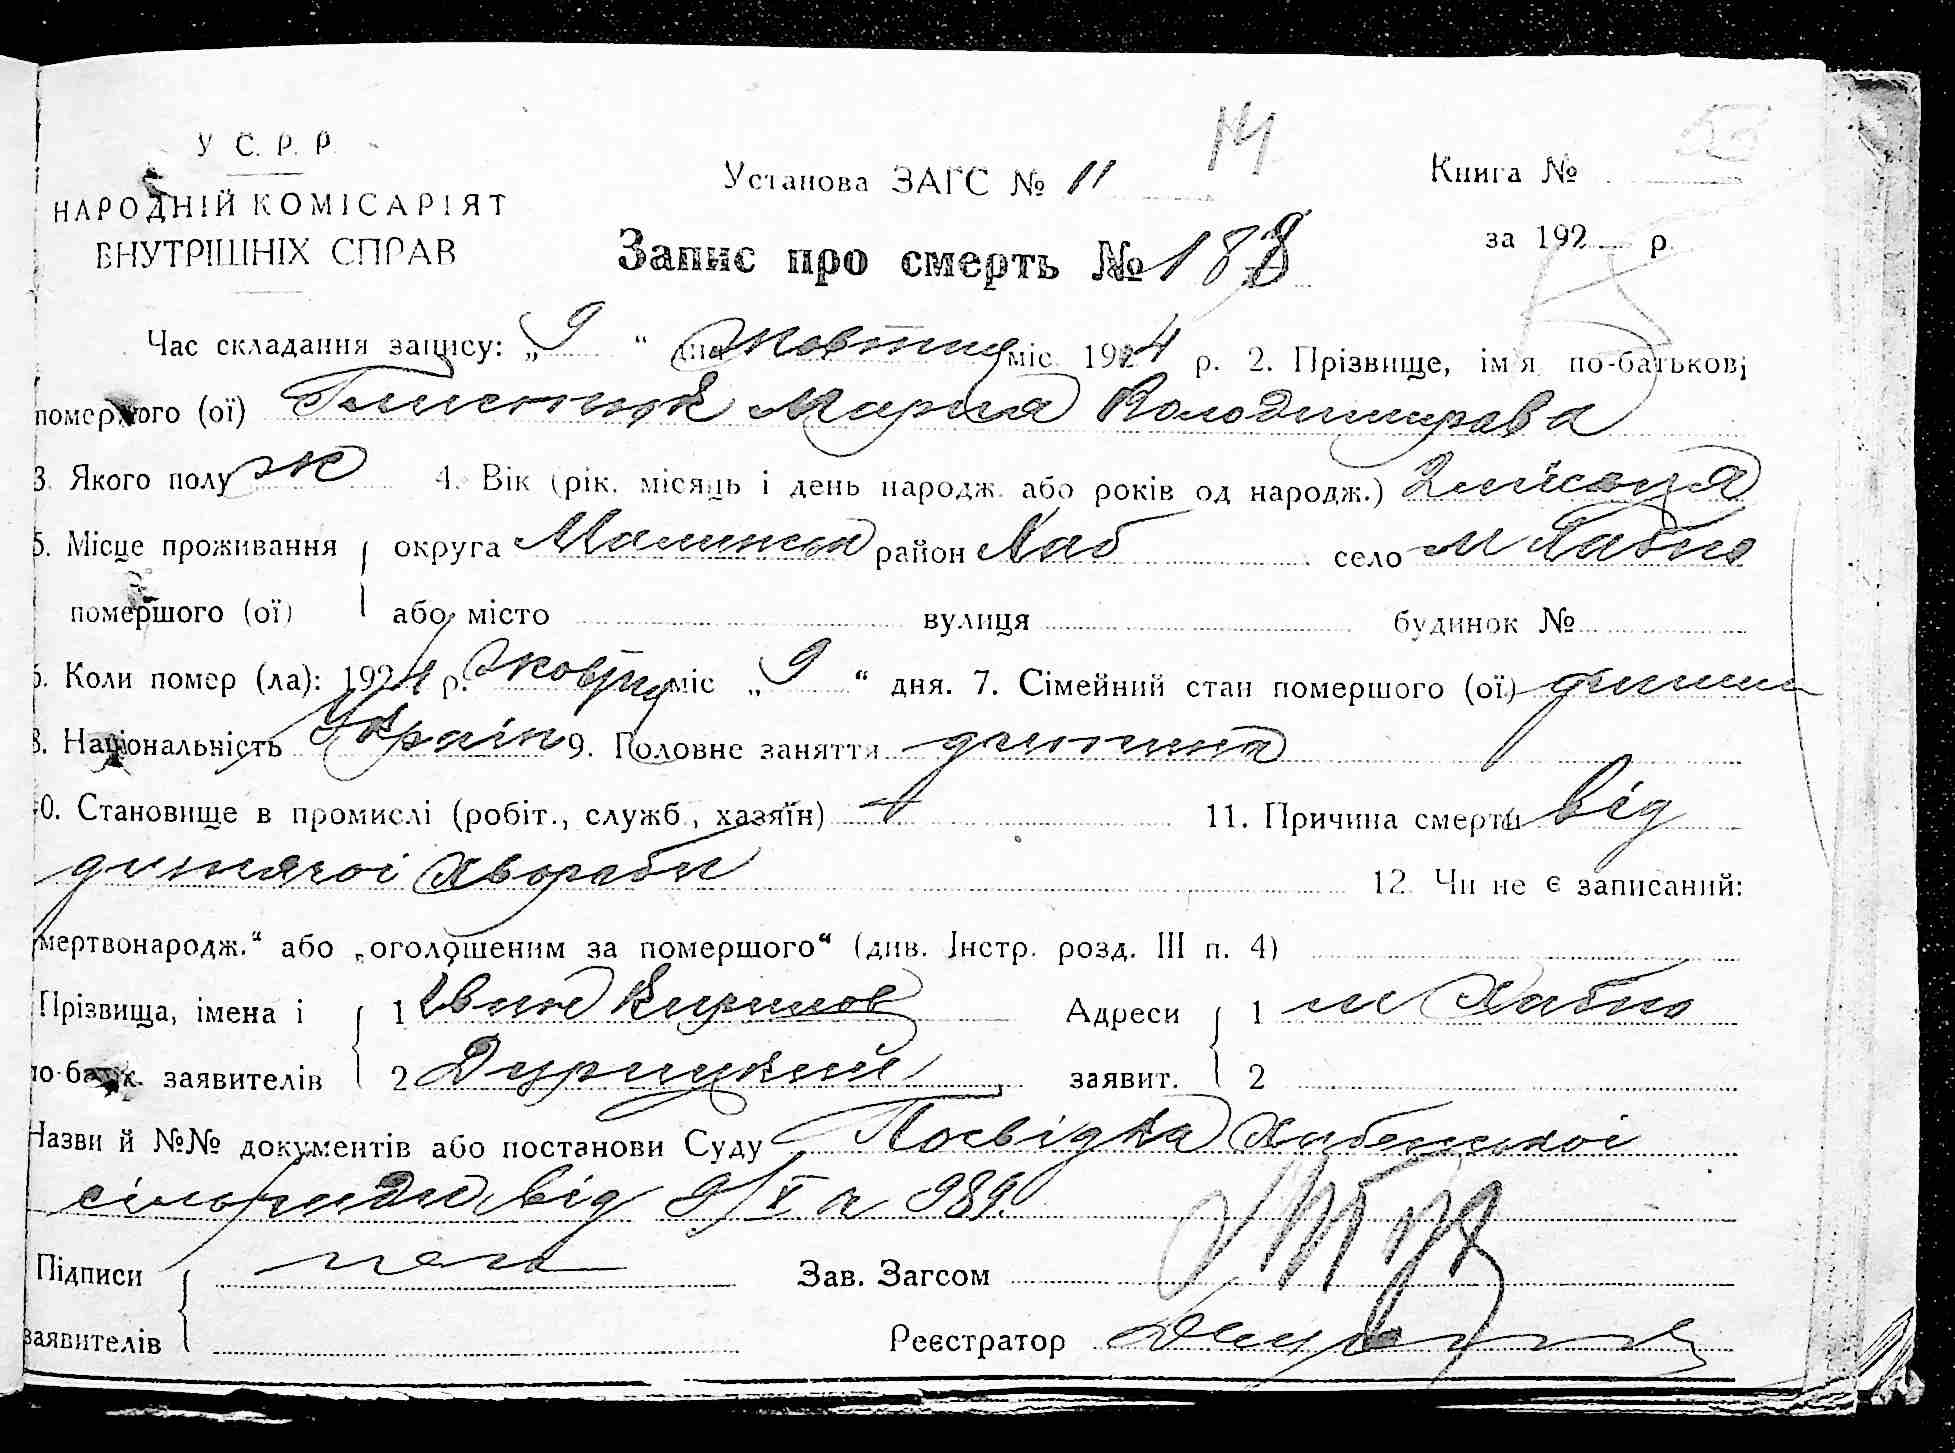 У С. Р. Р.
НАРОДНІЙ КОМІСАРІЯТ
ВНУТРІШНІХ СПРАВ
Установа ЗАГС № 11
Книга №
за 192 р.
Запис про смерть № 188
Час складання запису: „9“ дня жовтня міс. 1924 р. 2. Прізвище, ім'я по-батькові
померлого (ої) Мария Володимирова
3. Якого полу ж 4. Вік (рік. місяць і день народж. або років од народж.) 2 місяця
5. Місце проживання округа Малинська район Хаб село м Хабно
помершого (ої) або місто вулиця будинок №
6. Коли помер (ла): 1924 р. жовтня міс „9“ дня. 7. Сімейний стан помершого (ої)
8. Національність Україн 9. Головне заняття дитина
10. Становище в промислі (робіт., служб., хазяїн) 11. Причина смерти від
дитячої хвороби 12. Чи не є записаний:
мертвонародж.“ або „оголошеним за помершого“ (див. Інстр. розд. III п. 4)
Прізвища, імена і 1 Адреси 1 м Хабно
по-батьк. заявителів 2 заявит. 2
Назви й №№ документів або постанови Суду Посвідка Хабенської
сільради від 9/X № 989.
Підписи Зав. Загсом
заявителів Реєстратор